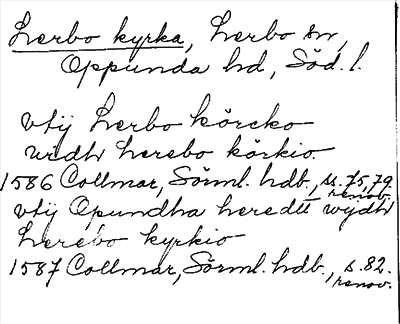 Lerbo kyrka, Lerbo sn,
Oppunda hd, Söd. l.
vtij Lerbo körcko
widh Lerebo körkio
1586 Collmar, Sörml. hdb., ss. 75, 79.
renov.
vtij Opundha heredtt wydh
Lerebo kyrkio
1587 Collmar, Sörml. hdb., s. 82.
renov.